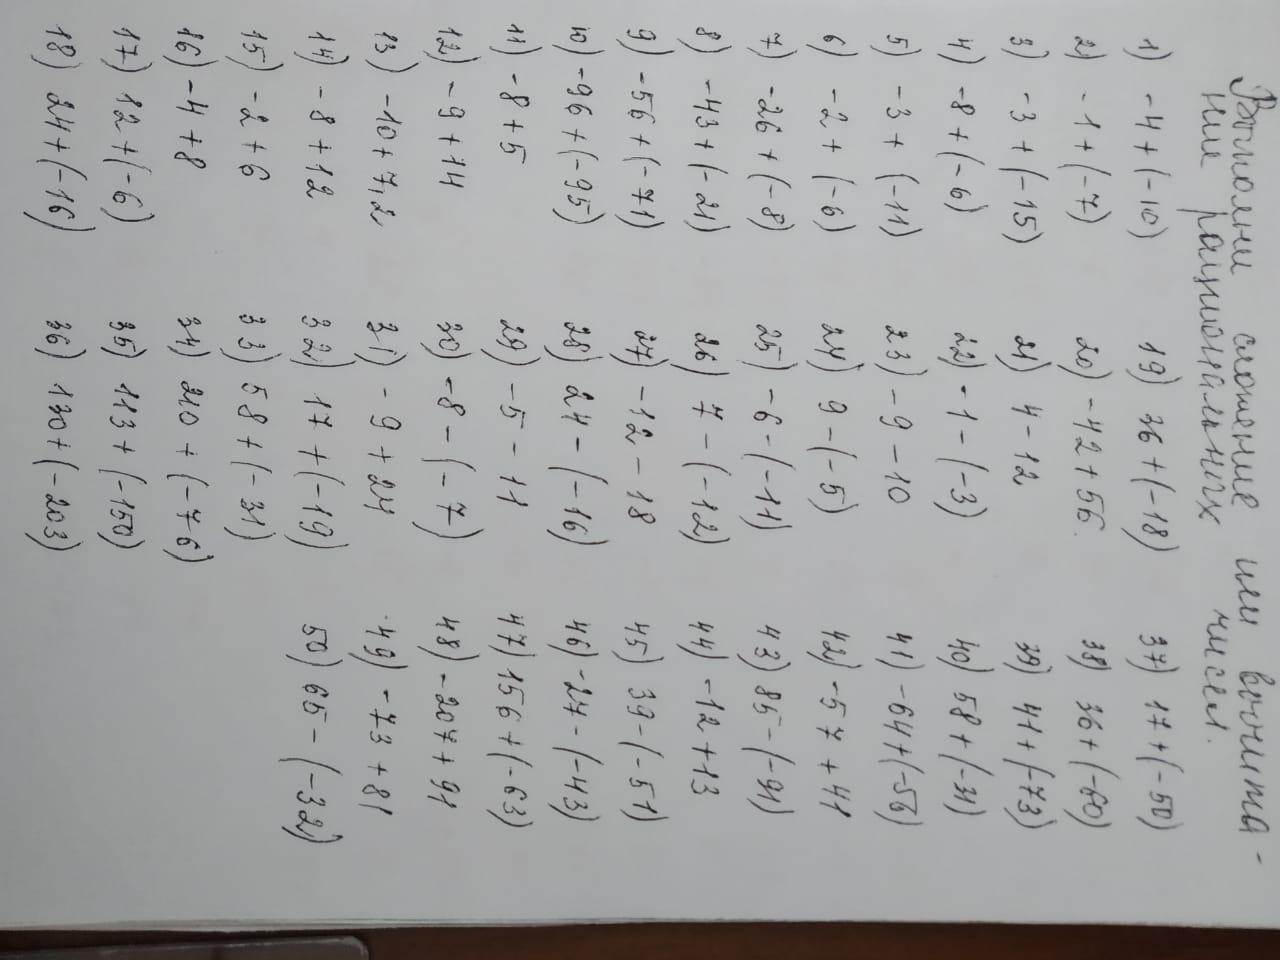 Выполни сложение или вычита-
ние рациональных чисел.
1) -4+(-10)
2) -1+(-7)
3) -3+(-15)
4) -8+(-6)
5) -3+(-11)
6) -2+(-6)
7) -26+(-8)
8) -43+(-21)
9) -56+(-71)
10) -96+(-95)
11) -8+5
12) -9+14
13) -10+7,2
14) -8+12
15) -2+6
16) -4+8
17) 12+(-6)
18) 24+(-16)
19) 36+(-18)
20) -42+56
21) 4-12
22) -1-(-3)
23) -9-10
24) 9-(-5)
25) -6-(-11)
26) 7-(-12)
27) -12-18
28) 24-(-16)
29) -5-11
30) -8-(-7)
31) -9+21
32) 17+(-19)
33) 58+(-31)
34) 210+(-76)
35) 113+(-150)
36) 130+(-203)
37) 17+(-50)
38) 36+(-60)
39) 41+(-73)
40) 58+(-31)
41) -64+(-56)
42) -57+41
43) 85-(-91)
44) -12+13
45) 39-(-51)
46) -27-(-43)
47) 156+(-63)
48) -207+91
49) -73+81
50) 65-(-32)